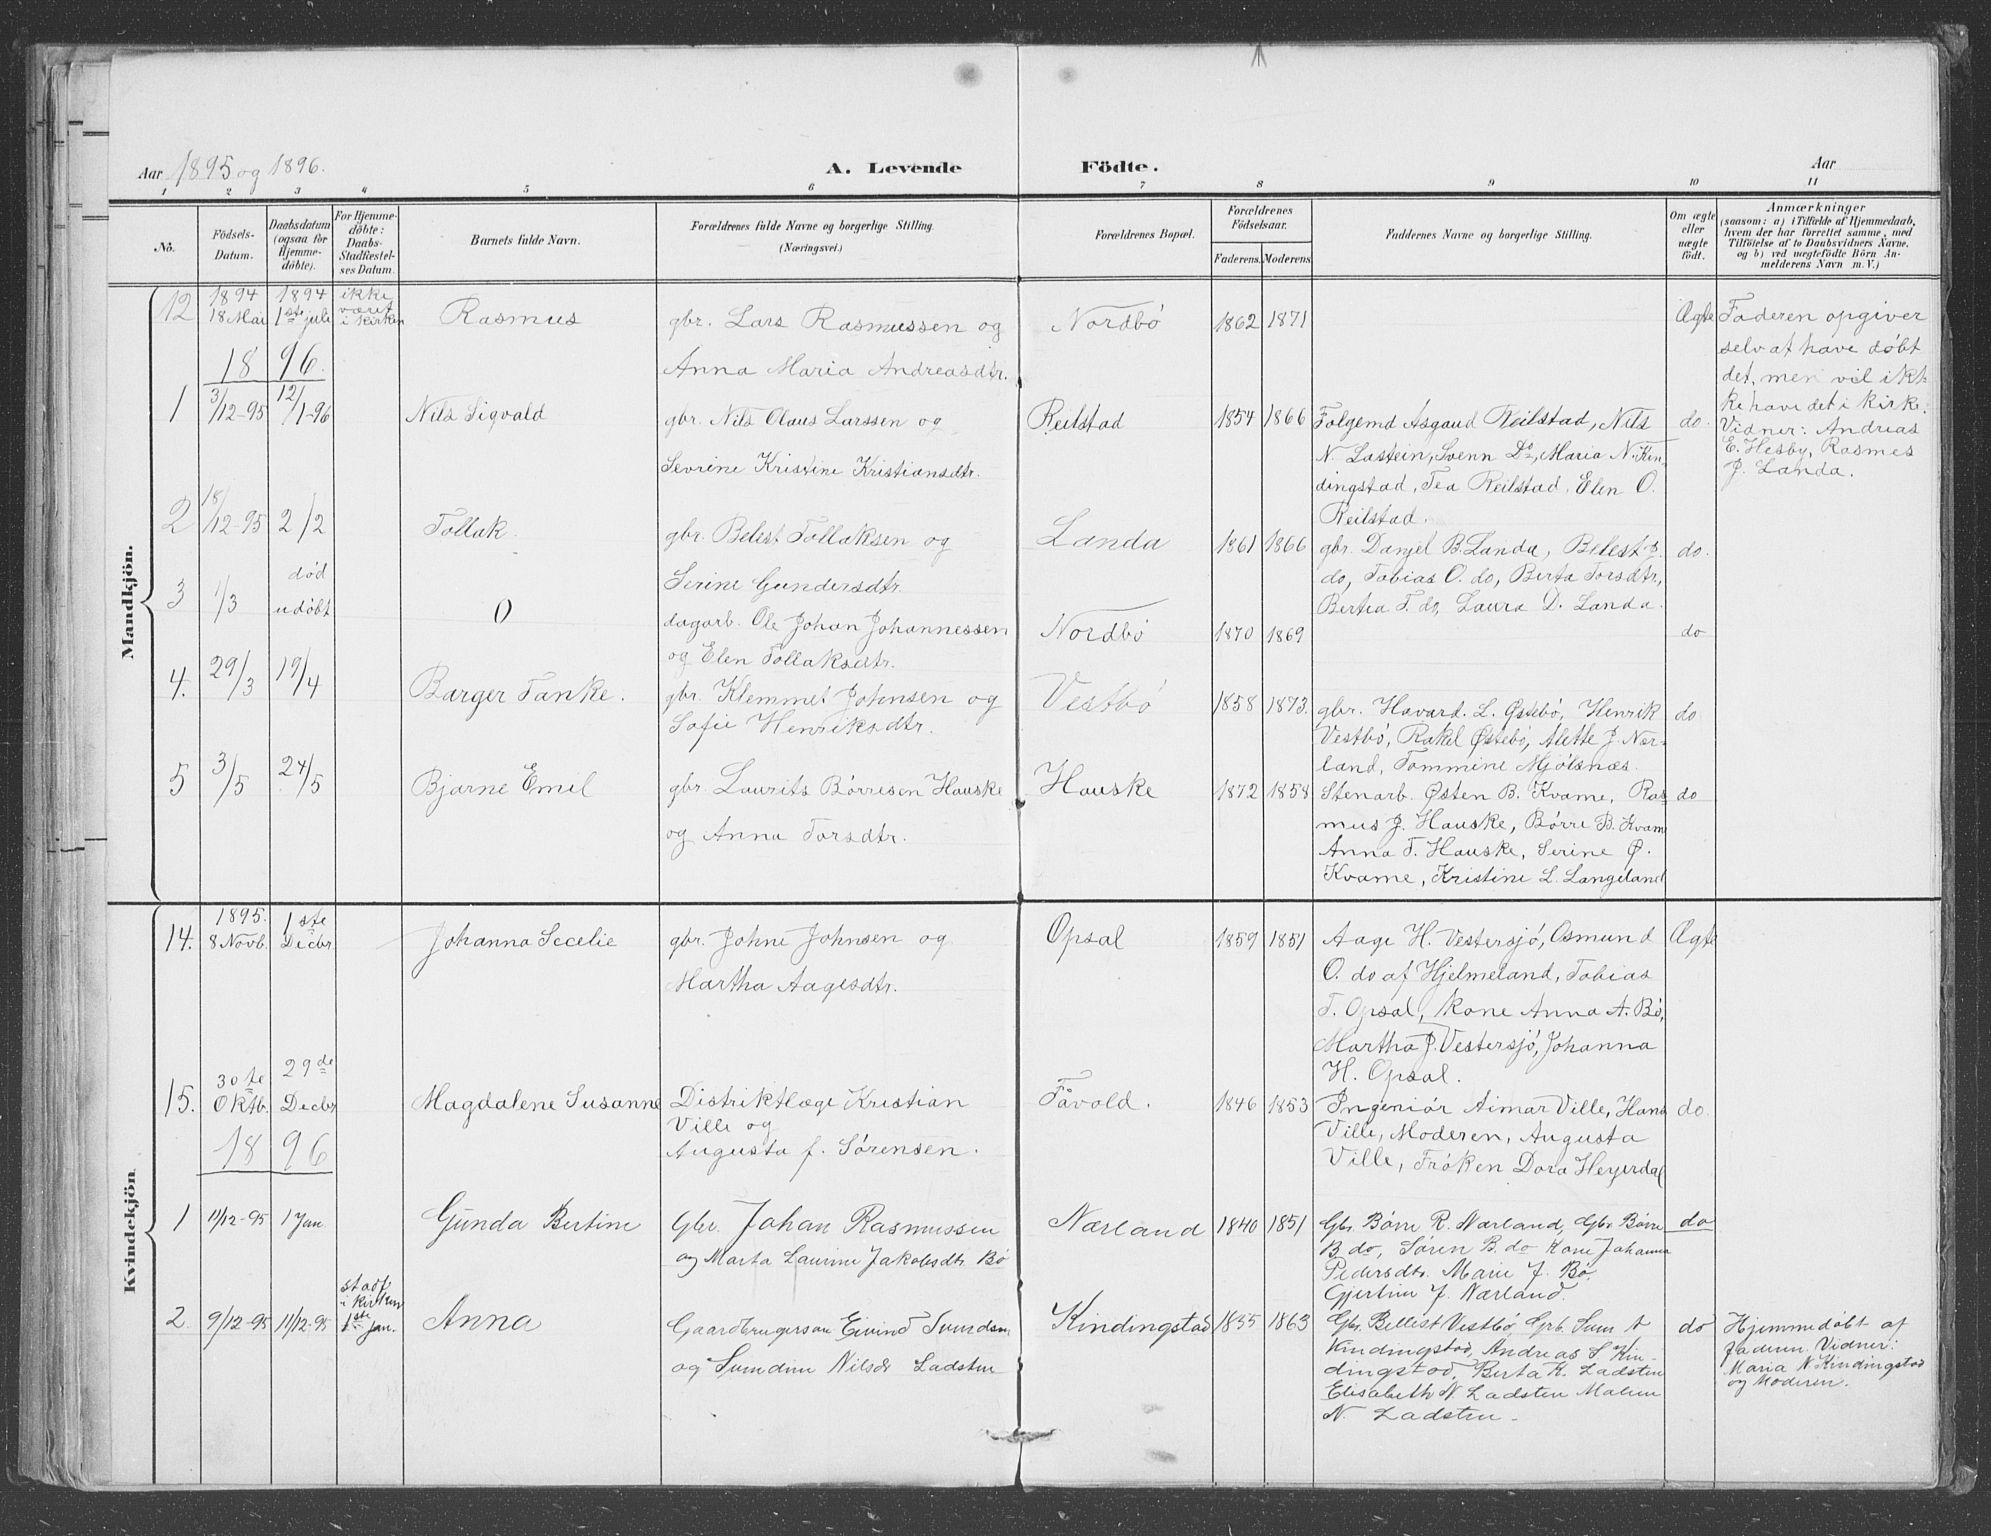 Aar 1895 og 1896.
A. Levende Födte.
Aar
1 2 3 4 5 6 7 8 9 10 11
No.
Födsels-Datum.
Daabsdatum (ogsaa for Hjemme-döbte).
For Hjemme-döbte: Daabs-Stadfæstel-ses Datum.
Barnets fulde Navn.
Forældrenes fulde Navne og borgerlige Stilling.
(Næringsvei.)
Forældrenes Bopæl.
Forældrenes Födselsaar.
Faderens. Moderens.
Faddernes Navne og borgerlige Stilling.
Om ægte eller uægte födt.
Anmærkninger
(saasom: a) i Tilfælde af Hjemmedaab,
hvem der har forrettet samme, med
Tilföielse af to Daabsvidners Navne,
og b) ved uægtefödte Börn An-
melderens Navn m. V.)
Mandkjön.
12 1894 18 Mai 1894 1ste juli ikke været i kirken Rasmus gbr. Lars Rasmussen og Nordbö 1862 1871 Ægte Faderen opgiver
Anna Maria Andreasdtr. selv at have døbt
det, men vil ik-
ke have det i kirke.
Vidner: Andreas
E. Hesby, Rasmes
J. Landa.
1896.
1 3/12-95 12/1-96 Nils Sigvald gbr. Nils Olaus Larssen og Reilstad 1854 1866 Folgemd Asgaud Reilstad, Nils do.
Sevrine Kristine Kristiansdtr. N. Lastein, Svenn Do, Maria N. Kin-
dingstad, Tea Reilstad, Elen O.
Reilstad.
2 18/12-95 2/2 Tollak. gbr. Belest Tollaksen og Landa 1861 1866 gbr. Danjel B. Landa, Belest J. do.
Serine Gundersdtr. do, Tobias O. do, Berta Torsdtr,
Bertea T. do, Laura D. Landa.
3 1/3 død udøbt O dagarb. Ole Johan Johannessen Nordbö 1870 1869 do
og Elen Tollaksdtr.
4. 29/3 19/4 Barger Tanke. gbr. Klemmet Johnsen og Vestbö 1858 1873. gbr. Havard. L. Østebö, Henrik do
Sofie Henriksdtr. Vestbö, Rakel Østebö, Alette J. Nær-
land, Tommine Mjölsnæs.
5 3/5 24/5 Bjarne Emil gbr. Laurits Børresen Hauske Hauske 1872 1858 Stenarb. Østen B. Kvame, Ras- do
og Anna Torsdtr. mus J. Hauske, Børre B. Kvame
Anna T. Hauske, Serine Ø.
Kvame, Kristine L. Langeland
Kvindekjön.
14. 1895. 8 Novb. 1ste Decbr. Johanna Secelie gbr. Johne Johnsen og Opsal 1859 1851 Aage H. Vestersjö, Osmund Ægte
Martha Aagesdtr. O. do af Hjelmeland, Tobias
T. Opsal, kone Anna A. Bö,
Martha J. Vestersjö, Johanna
H. Opsal.
15. 30te Oktb. 29de Decbr Magdalene Susanne Distriktlæge Kristian Tåvold. 1846 1853 Ingeniör Aimar Ville, Hans do.
Ville og Ville, Moderen, Augusta
Augusta f. Sørensen. Ville, Fröken Dora Heyerdal
1896
1 11/12-95 1 Jan. Gunda Bertine Gbr. Johan Rasmussen Nærland 1840 1851 Gbr. Børre R. Nærland, Gbr Børre do
og Marta Laurine Jakobsdtr. Bö B do, Søren B. do Kone Johanna
Pedersdtr. Marie J. Bö.
Gjertine J. Nærland.
2. 9/12-95 11/12-95 stadf. i kirken 1ste Jan. Anna Gaardbrugerson Eivind Svendsen Kindingstad 1855 1863 Gbr. Bellest Vestbö, Grb. Sven do Hjemmedøbt af
og Svendine Nilsdr Ladsten Kindingstad, Andreas S Kin- Faderen. Vidner:
dingstad, Berta K. Ladsten Maria N. Kindingstad
Elisabeth N. Ladsten Malene og Moderen.
N. Ladsten.